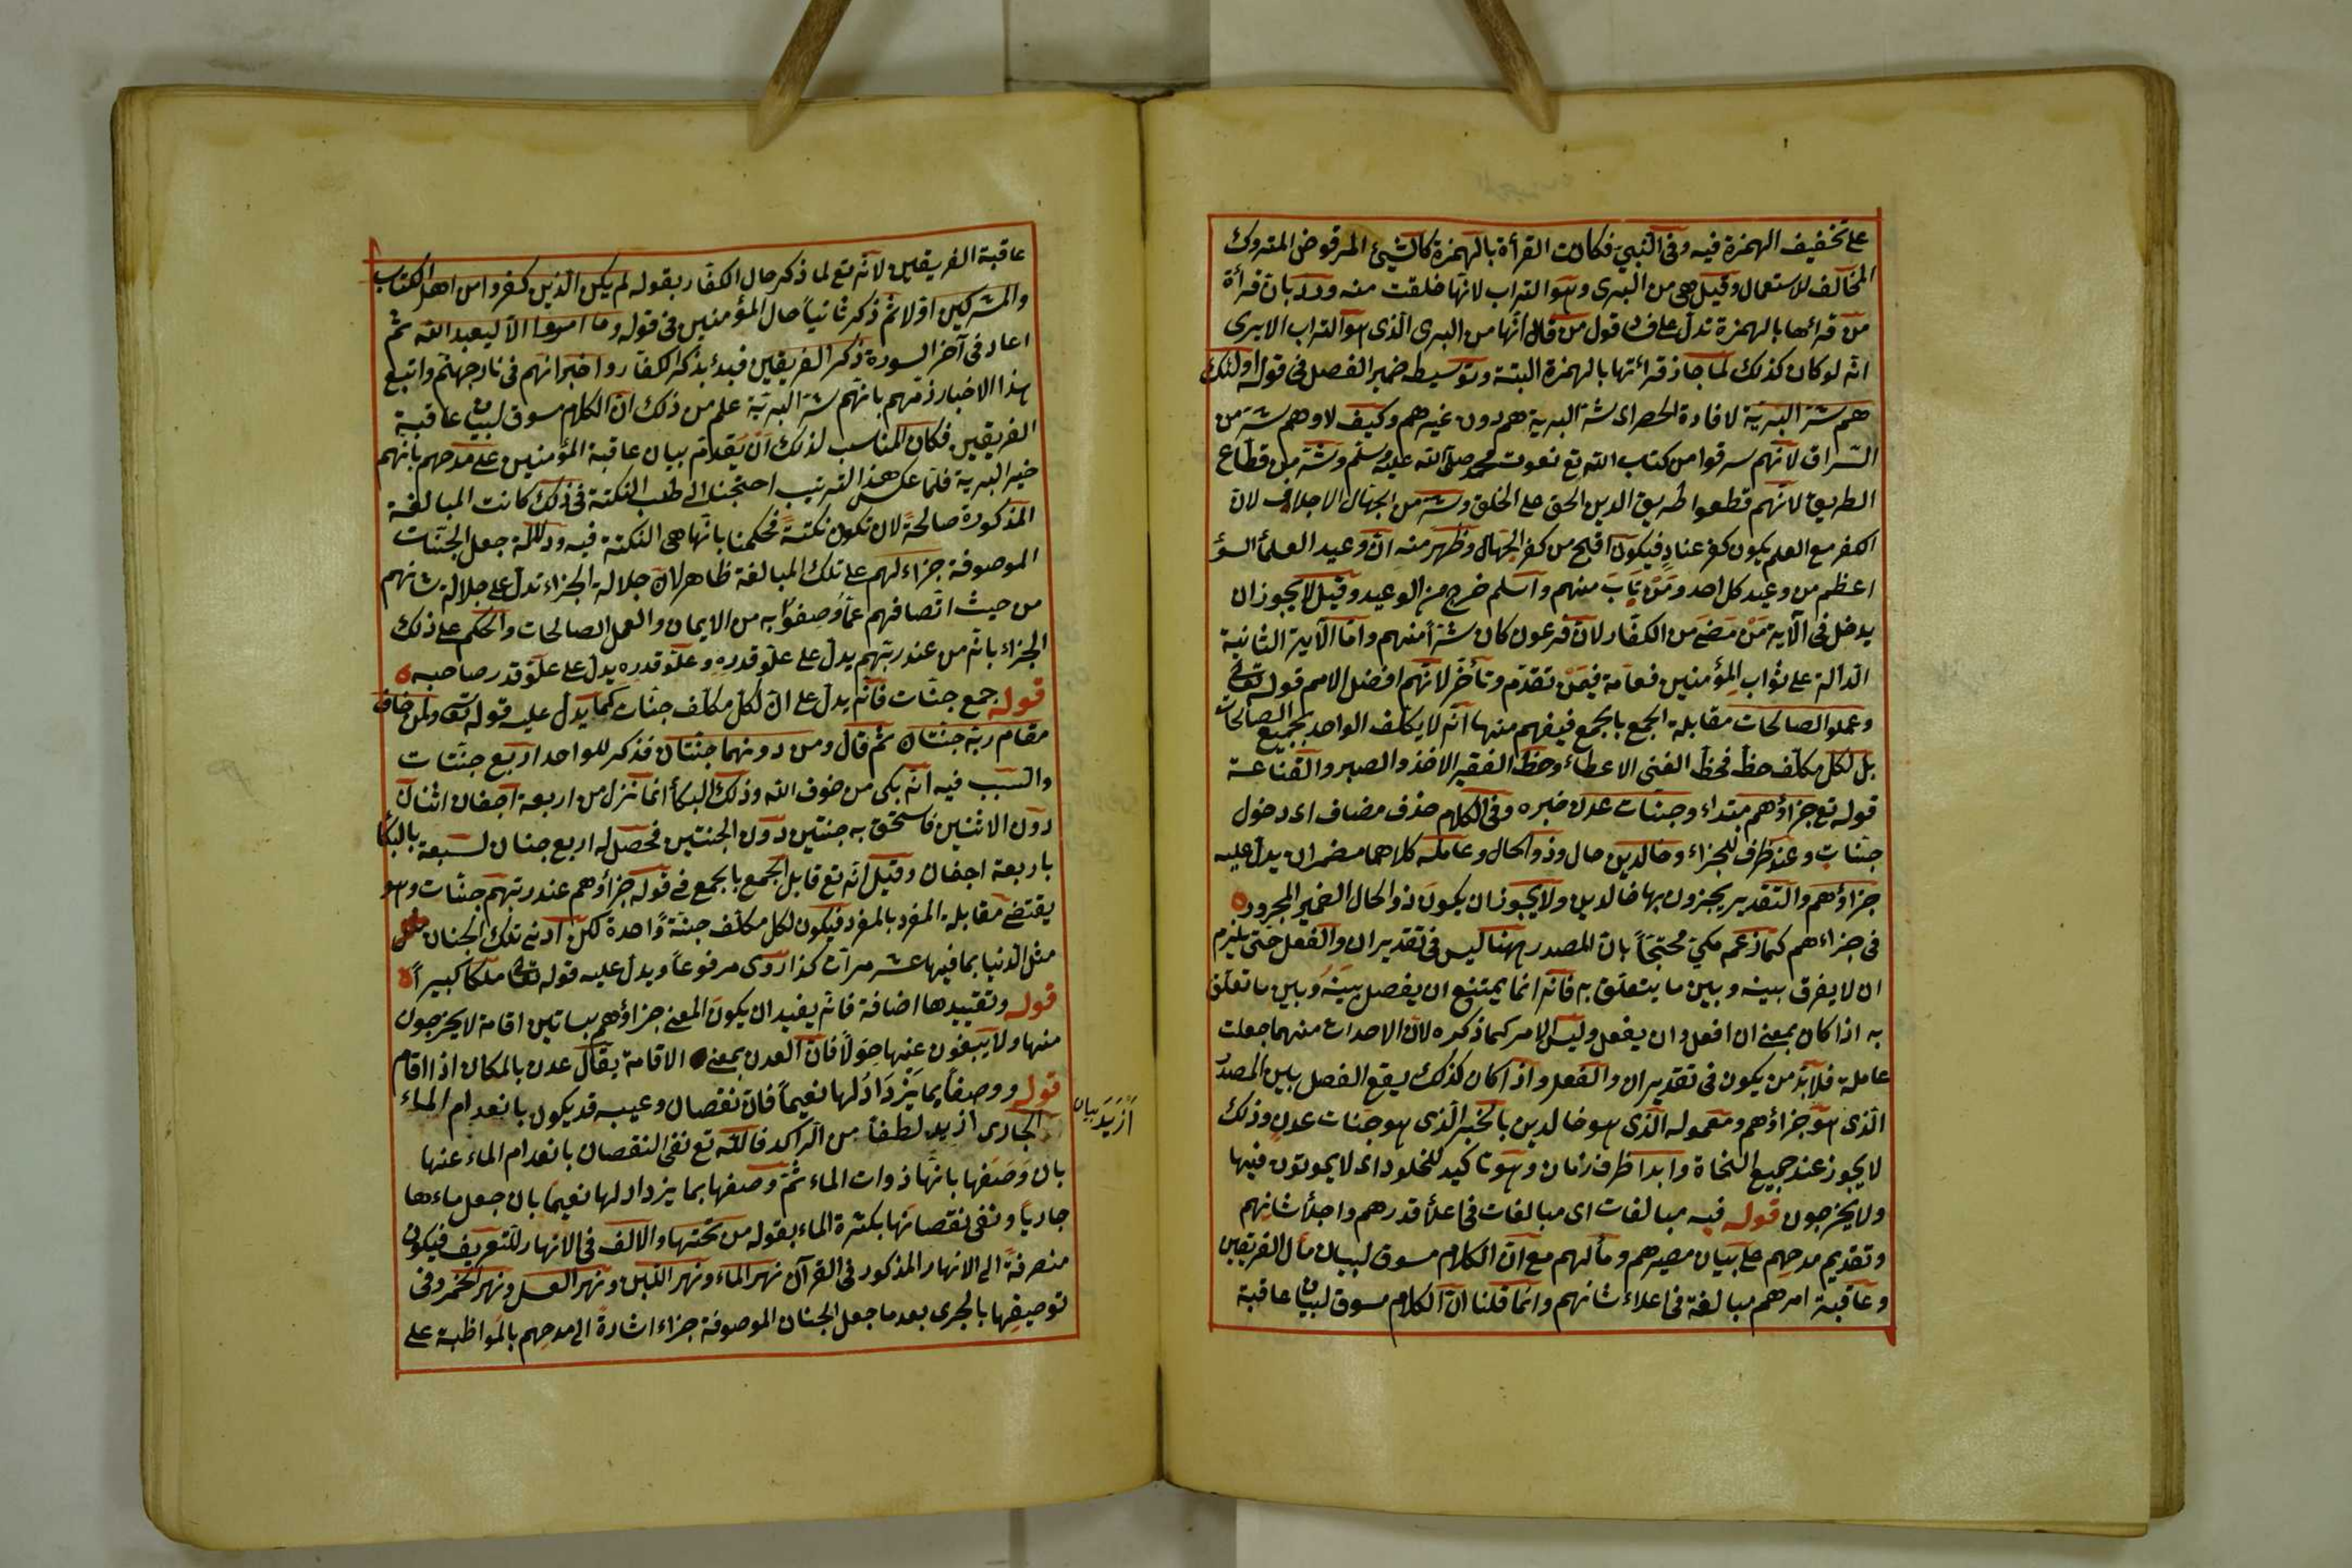 على تخفيف الهمزة فيه وفى النبي فكانت القرأة بالهمزة كالشيئ المرفوض المتروك
المخالف للاستعمال وقيل هى من البرى وهو التراب لانها خلقت منه وردد بان قرأة
من قرائها بالهمزة تدل على فساد قول من قال انها من البرى الذى هو التراب الا يرى
انه لو كان كذلك لما جاز قرائتها بالهمزة البتة وتوسيطه ضمير الفصل فى قوله اولئك
هم شر البرية لافادة الحصر اى شر البرية هم دون غيرهم وكيف لا وهم شر من
السراق لانهم سرقوا من كتاب الله تع نعوت محمد صلى الله عليه وسلم وشر من قطاع
الطريق لانهم قطعوا طريق الدين الحق على الخلق وشر من الجهال الاجلاف لان
الكفر مع العلم يكون كفر عناد فيكون اقبح من كفر الجهال وظهر منه ان وعيد العلمأ السؤ
اعظم من وعيد كل احد ومن تاب منهم واسلم خرج من الوعيد وقيل لا يجوز ان
يدخل فى الآية من مضى من الكفار لان فرعون كان شرا منهم واما الآية الثانية
الدالة على ثواب المؤمنين فعامة فيمن تقدم وتأخر لانهم افضل الامم قوله تعالى
وعملو الصالحات مقابلة الجمع بالجمع فيفهم منها انه لا يكلف الواحد بجميع الصالحات
بل لكل مكلف حظ فحظ الغنى الاعطاء وحظ الفقير الاخذ والصبر والقناعة
قوله تع جزاؤهم مبتداء وجنات عدن خبره وفى الكلام حذف مضاف اى دخول
جنات وعند ظرف للجزاء وخالدين حال وذو الحال وعامله كلاهما مضمران يدل عليه
جزاؤهم والتقدير يجزون بها خالدين ولا يجوز ان يكون ذو الحال الضمير المجرور
فى جزاءهم كما زعم مكي محتجا بان المصدر ههنا ليس فى تقدير ان والفعل حتى يلزم
ان لا يفرق بينه وبين ما يتعلق به فانه انما يمتنع ان يفصل بينه وبين ما تعلق
به اذا كان بمعنى ان افعل وان يفعل وليس الامر كما ذكره لان الاحداث منهما جعلت
عاملة فلا بد من يكون فى تقدير ان والفعل واذا كان كذلك يقع الفصل بين المصدر
الذى هو جزاؤهم ومعموله الذى هو خالدين بالخبر الذى هو جنات عدن وذلك
لا يجوز عند جميع النخاة وابدا ظرف زمان وهو تاكيد للخلود اى لا يموتون فيها
ولا يخرجون قوله فيه مبالغات اى مبالغات فى اعلأ قدرهم واجلأ شانهم
وتقديم مدحهم على بيان مصيرهم ومآلهم مع ان الكلام مسوق لبيان مآل الفريقين
وعاقبة امرهم مبالغة فى اعلاء شانهم وانما قلنا ان الكلام مسوق لبيان عاقبة
عاقبة الفريقين لانه تع لما ذكر حال الكفار بقوله لم يكن الذين كفروا من اهل الكتاب
والمشركين اولا ثم ذكر ثانيا حال المؤمنين فى قوله وما امروا الا ليعبد الله ثم
اعاد فى آخر السورة ذكر الفريقين فبدئ بذكر الكفار واخبر انهم فى نار جهنم واتبع
هذا الاخبار ذمهم بانهم شر البرية علم من ذلك ان الكلام مسوق لبيان عاقبة
الفريقين فكان المناسب لذلك ان يقدم بيان عاقبة المؤمنين على مدحهم بانهم
خير البرية فلما عكس هذا الترتيب احتجنا الى طلب النكتة فى ذلك كانت المبالغة
المذكورة صالحة لان تكون نكتة فحكمنا بانها هى النكتة فيه ودلالة جعل الجنات
الموصوفة جزاء لهم على تلك المبالغة ظاهر لان جلالة الجزاء تدل على جلالة شانهم
من حيث اتصافهم عما وصفوا به من الايمان والعمل الصالحات والحكم على ذلك
الجزاء بانه من عند ربهم يدل على علو قدره وعلو قدره يدل على علو قدر صاحبه
قوله جمع جنات فانه يدل على ان لكل مكلف جنات كما يدل عليه قوله تع ولمن خاف
مقام ربه جنتان ثم قال ومن دونهما جنتان فذكر للواحد اربع جنات
والسبب فيه انه بكى من خوف الله وذلك البكأ انما تنزل من اربعة اجفان اثنان
دون الاثنين فاستحق به جنتين دون الجنتين فحصل له اربع جنان لسبعة بالبكأ
باربعة اجفان وقيل انه تع قابل الجمع بالجمع فى قوله جزاؤهم عند ربهم جنات وهو
يقتضى مقابلة المفرد بالمفرد فيكون لكل مكلف جنة واحدة لكن ادنى تلك الجنان
مثل الدنيا بما فيها عشر مرات كذا روى مرفوعا ويدل عليه قوله تعا ملكا كبيرا
قوله وتقييدها اضافة فانه يفيد ان يكون المعنى جزاؤهم بساتين اقامة لا يخرجون
منها ولا يبغون عنها حولا فان العدن بمعنى الاقامة يقال عدن بالمكان اذا اقام
قوله ووصفا بما يزداد لها نعيما فان نقصان وعيبه قد يكون بانعدام الماء
الجارى ازيد لطفا من الراكد فالله تع نفى النقصان بانعدام الماء عنها
بان وصفها بانها ذوات الماء ثم وصفها بما يزداد لها نعيما بان جعل ماءها
جاريا ونفى نقصانها بكثرة الماء بقوله من تحتها والالف فى الانهار للتعريف فيكون
منصرفة الى الانهار المذكور فى القرآن نهر الماء ونهر اللبن ونهر العسل ونهر الخمر وفى
توصيفها بالجرى بعد ما جعل الجنان الموصوفة جزاء اشارة الى مدحهم بالمواظبة على
ازيد بيان